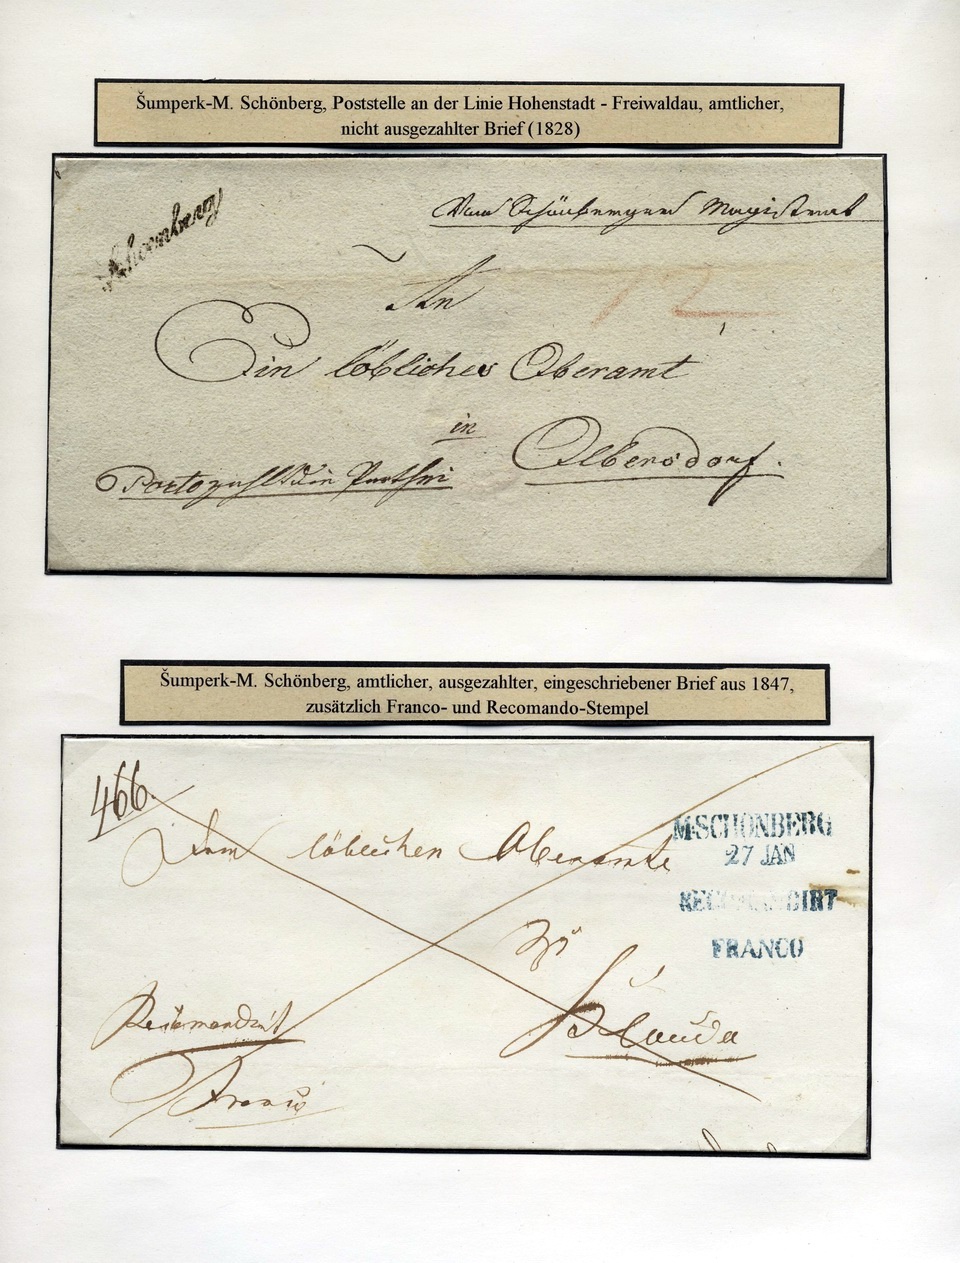 Šumperk-M. Schönberg, Poststelle an der Linie Hohenstadt - Freiwaldau, amtlicher,
nicht ausgezahlter Brief (1828)
Schoenberg
Vom Schönberger Magistrat
An
12
Ein löbliches Oberamt
in
Olbersdorf.
Šumperk-M. Schönberg, amtlicher, ausgezahlter, eingeschriebener Brief aus 1847,
zusätzlich Franco- und Recomando-Stempel
466
M.SCHÖNBERG
27 JAN
Dem löblichen Oberamte
RECOMANDIRT
FRANCO
zu
Blauda
Recomandirt
Franco